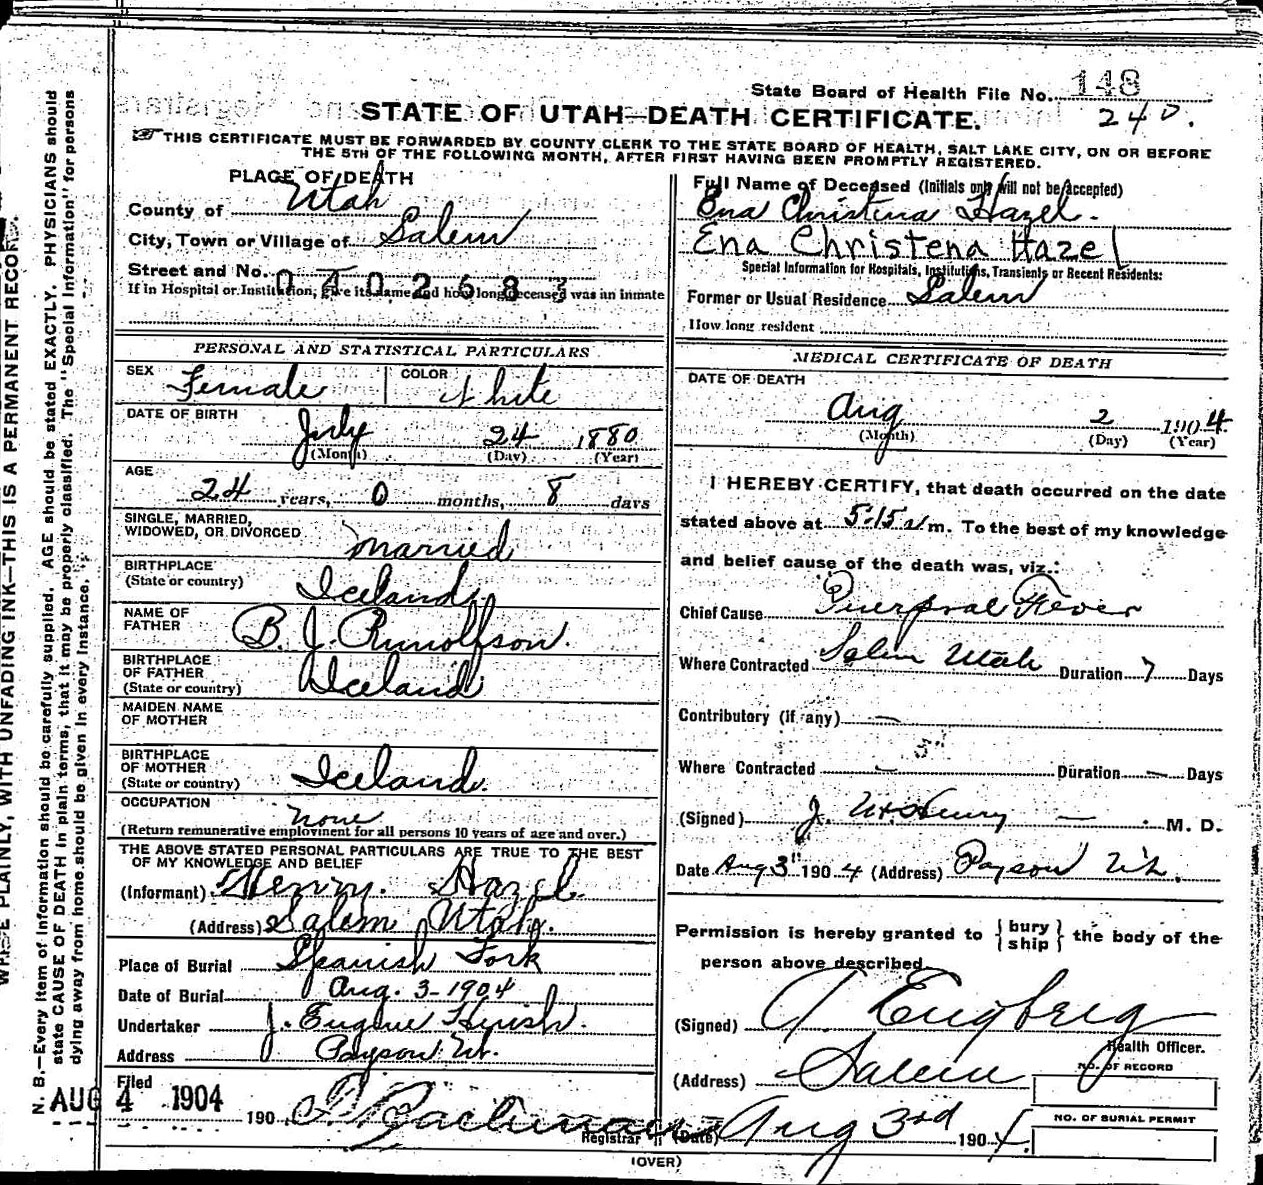 State Board of Health File No. 148
STATE OF UTAH—DEATH CERTIFICATE. 240.
THIS CERTIFICATE MUST BE FORWARDED BY COUNTY CLERK TO THE STATE BOARD OF HEALTH, SALT LAKE CITY, ON OR BEFORE
THE 5TH OF THE FOLLOWING MONTH, AFTER FIRST HAVING BEEN PROMPTLY REGISTERED.
PLACE OF DEATH
County of Utah
City, Town or Village of Salem
Street and No.
0402683
If in Hospital or Institution, give its name and how long deceased was an inmate
PERSONAL AND STATISTICAL PARTICULARS
SEX Female COLOR White
DATE OF BIRTH
July 24 1880
(Month) (Day) (Year)
AGE
24 years, 0 months, 8 days
SINGLE, MARRIED,
WIDOWED, OR DIVORCED married
BIRTHPLACE
(State or country) Iceland
NAME OF
FATHER B. J. Runolfson.
BIRTHPLACE
OF FATHER
(State or country) Iceland
MAIDEN NAME
OF MOTHER
BIRTHPLACE
OF MOTHER
(State or country) Iceland
OCCUPATION none
(Return remunerative employment for all persons 10 years of age and over.)
THE ABOVE STATED PERSONAL PARTICULARS ARE TRUE TO THE BEST
OF MY KNOWLEDGE AND BELIEF
(Informant) Henry. Hazel
(Address) Salem Utah.
Place of Burial Spanish Fork
Date of Burial Aug. 3-1904
Undertaker J. Eugene
Address Payson Ut.
Filed
AUG 4 1904 190
Registrar
Full Name of Deceased (Initials only will not be accepted)
Ena Christina Hazel.
Ena Christena Hazel
Special Information for Hospitals, Institutions, Transients or Recent Residents:
Former or Usual Residence Salem
How long resident
MEDICAL CERTIFICATE OF DEATH
DATE OF DEATH
Aug 2 1904
(Month) (Day) (Year)
I HEREBY CERTIFY, that death occurred on the date
stated above at 5:15 m. To the best of my knowledge
and belief cause of the death was, viz.:
Chief Cause Puerpral Fever
Where Contracted Salem Utah Duration 7 Days
Contributory (if any) —
Where Contracted — Duration — Days
(Signed) J. Henry — M. D.
Date Aug 3" 1904 (Address) Payson Ut.
Permission is hereby granted to {bury
ship} the body of the
person above described
(Signed) A. Engberg
Health Officer.
(Address) Salem
NO. OF RECORD
NO. OF BURIAL PERMIT
(Date) Aug 3rd 1904.
(OVER)
WRITE PLAINLY, WITH UNFADING INK—THIS IS A PERMANENT RECORD.
N. B.—Every item of information should be carefully supplied. AGE should be stated EXACTLY. PHYSICIANS should
state CAUSE OF DEATH in plain terms, that it may be properly classified. The "Special Information" for persons
dying away from home should be given in every instance.